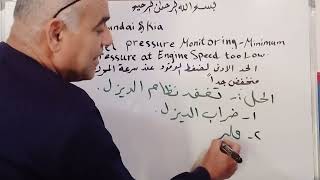 بسم الله الرحمن الرحيم
ndai & Kia
el pressure Monitoring - Minimum
ressure at Engine Speed too Low
الحد الادنى لضغط الوقود عند سرعة
منخفض جداً
الحل :- تفقد نظام الديزل.
١- ضراب الديزل.
٢- فلتر